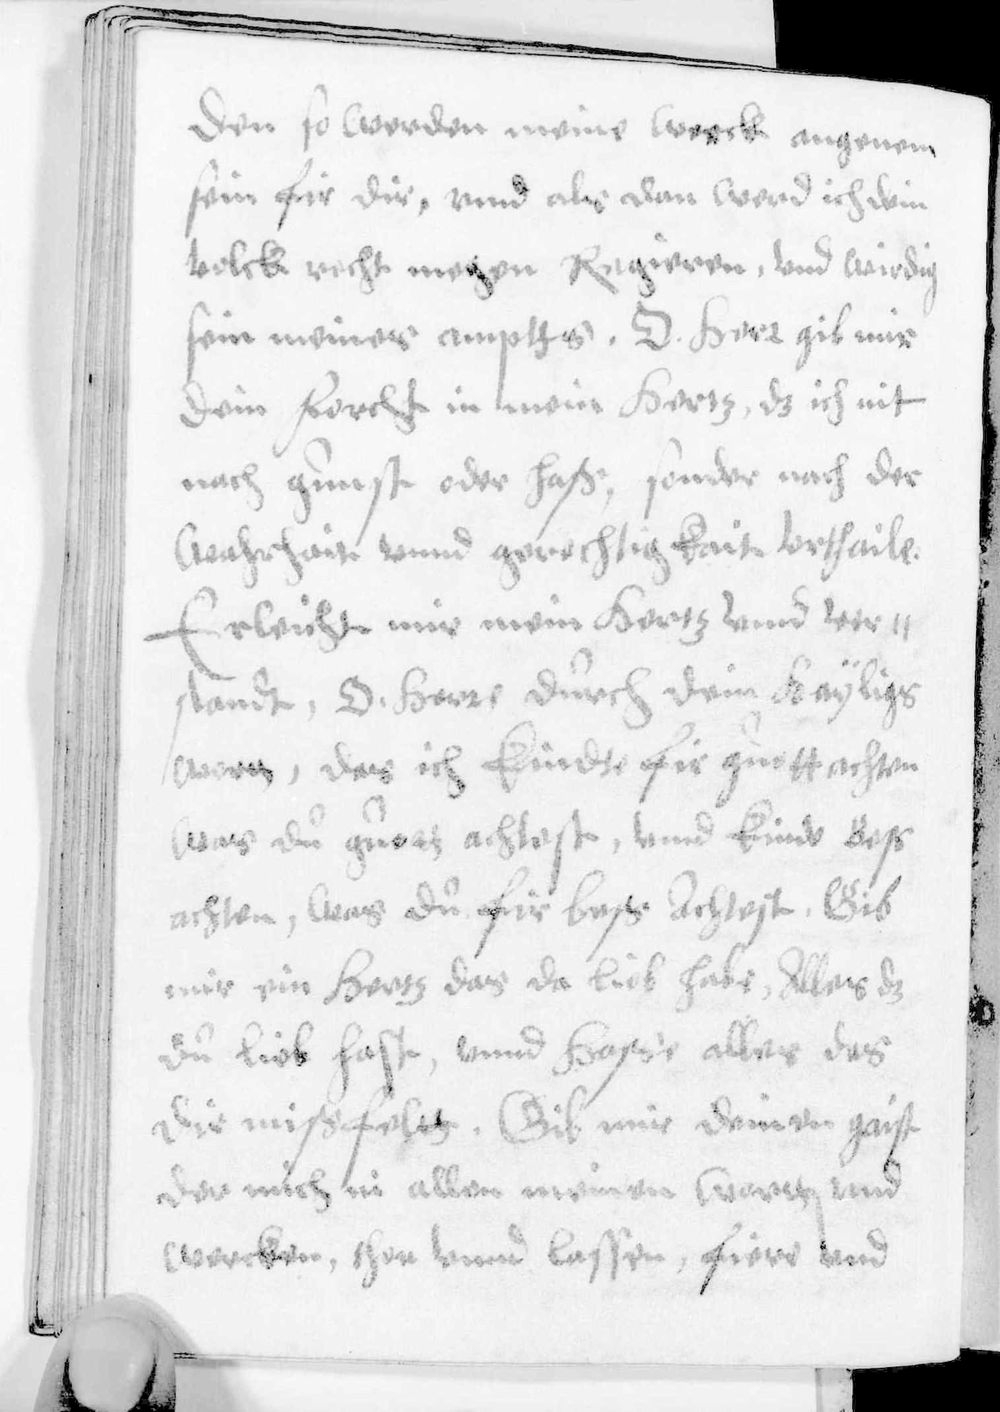 Den so werden meine werck angenem
sein fir dir, vnnd als dan werd ich dein
volck recht megen Regieren, vnd wirdig
sein meines ampltts. O. Herr gib mir
dein forcht in mein Hertz, dz ich nit
nach gunst oder haß, sonder nach der
Wahrhait vnnd gerechtigkait vrthaile.
Erleicht mir mein Hertz vnnd ver=
standt, O. Herre durch dein Hayligs
wortt, das ich kindte fir guett achten
was du guett achtest, vnnd kinde bess
achten, was du fir bess Achtest. Gib
mir ein Hertz das da lieb habe, Alles dz
du lieb hast, vnnd Hasse alles das
dir missfelt. Gib mir deinen gaist
der mich in allen meinen Wortt vnd
wercken, thon vnnd lassen, fiere vnd